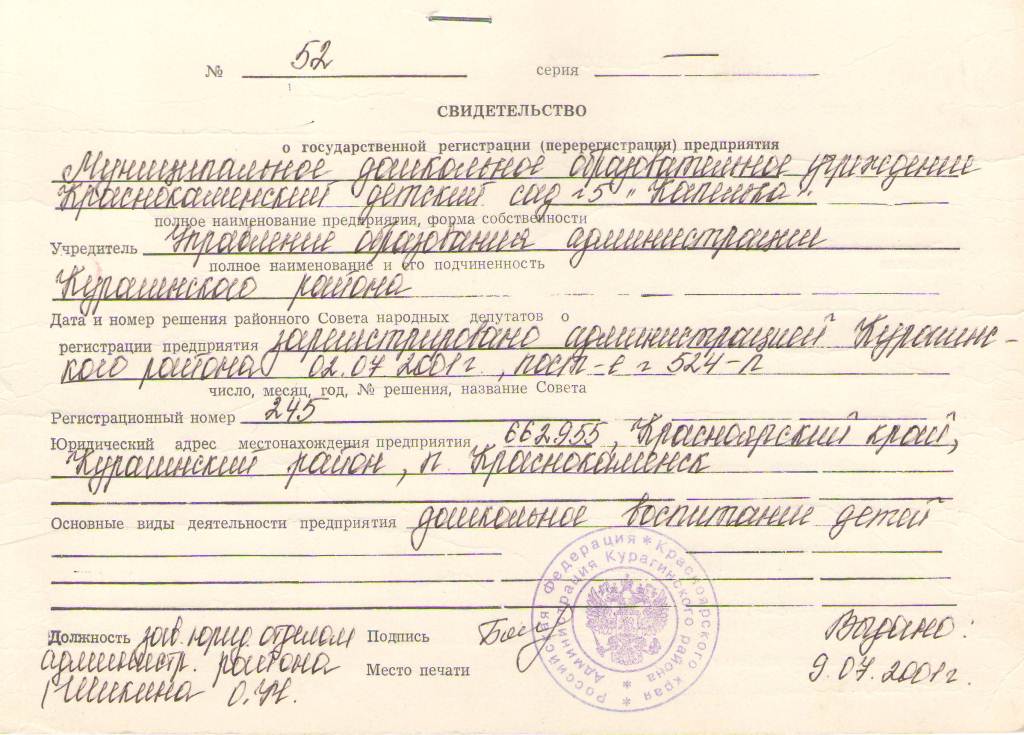 № 52 серия —
СВИДЕТЕЛЬСТВО
о государственной регистрации (перерегистрации) предприятия
Муниципальное дошкольное образовательное учреждение
Краснокаменский детский сад №5 "Капелька".
полное наименование предприятия, форма собственности
Учредитель Управление образования администрации
полное наименование и его подчиненность
Курагинского района
Дата и номер решения районного Совета народных депутатов о
регистрации предприятия зарегистрировано администрацией Курагинс-
кого района 02.07 2001г., пост-е № 524-п
число, месяц, год, № решения, название Совета
Регистрационный номер 245
Юридический адрес местонахождения предприятия 662955, Красноярский край,
Курагинский район, п. Краснокаменск
Основные виды деятельности предприятия дошкольное воспитание детей
Российская Федерация * Красноярского края *
Администрация Курагинского района *
Должность зав. юрид. отделом Подпись Выдано:
администр. района Место печати 9.07.2001г.
О.Н.